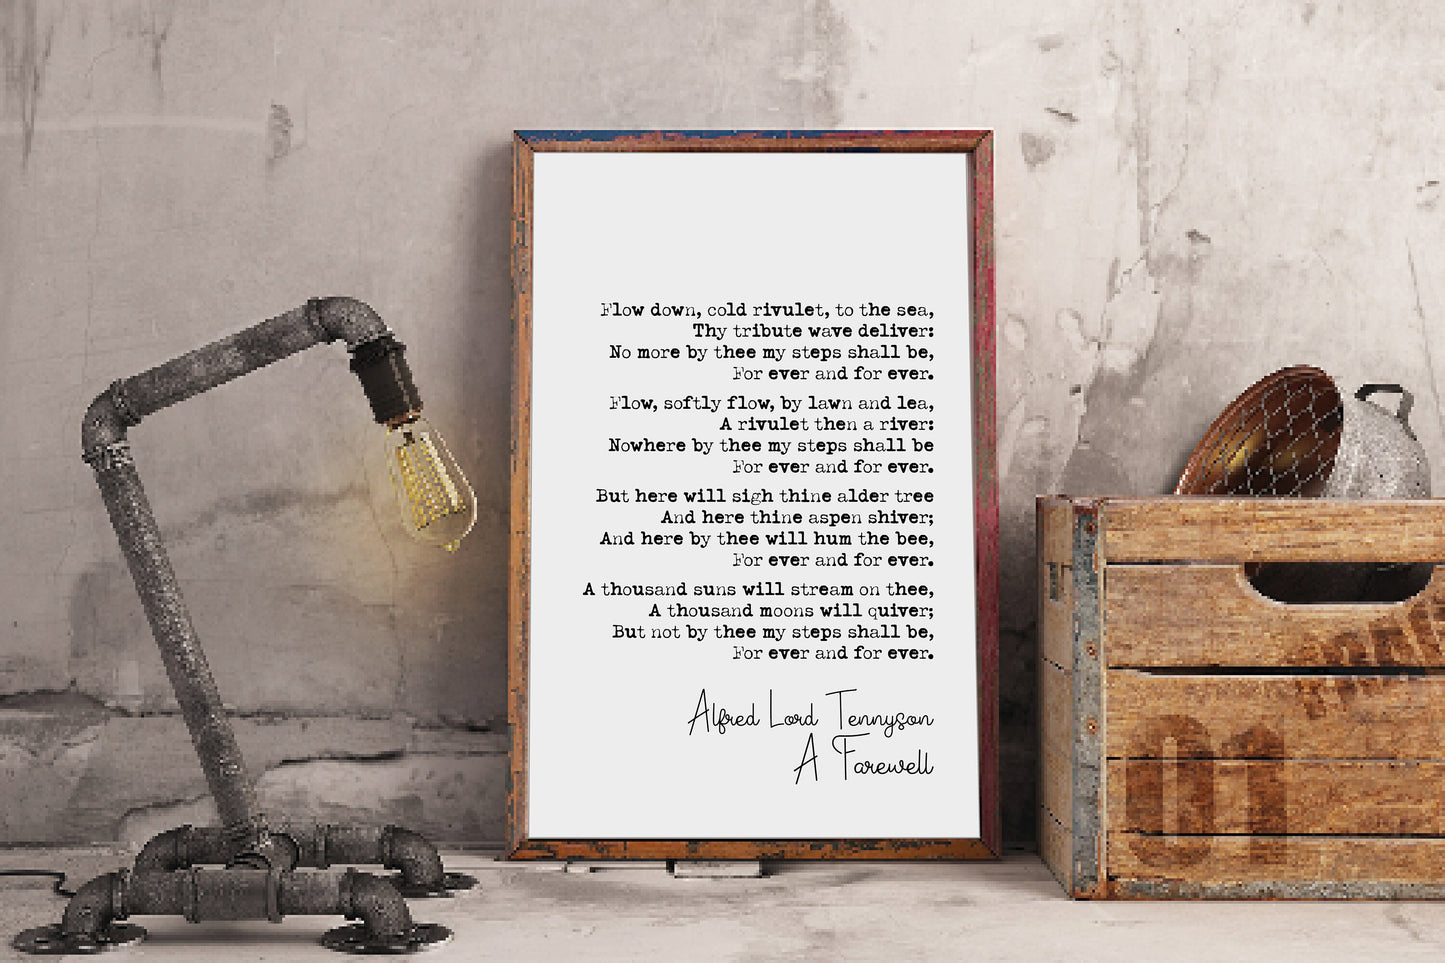 Flow down, cold rivulet, to the sea,
Thy tribute wave deliver:
No more by thee my steps shall be,
For ever and for ever.
Flow, softly flow, by lawn and lea,
A rivulet then a river:
Nowhere by thee my steps shall be
For ever and for ever.
But here will sigh thine alder tree
And here thine aspen shiver;
And here by thee will hum the bee,
For ever and for ever.
A thousand suns will stream on thee,
A thousand moons will quiver;
But not by thee my steps shall be,
For ever and for ever.
Alfred Lord Tennyson
A Farewell
01